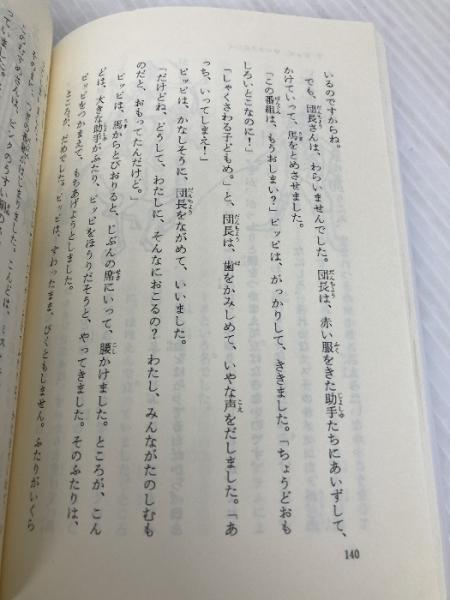 いるのですからね。
でも、団長さんは、わらいませんでした。団長は、赤い服をきた助手たちにあいずして、
かけていって、馬をとめさせました。
「この番組は、もうおしまい？」ピッピは、がっかりして、ききました。「ちょうどおも
しろいとこなのに！」
「しゃくさわる子どもめ。」と、団長は、歯をかみしめて、いやな声をだしました。「あ
っち、いってしまえ！」
ピッピは、かなしそうに、団長をながめて、いいました。
「だけどね、どうして、わたしに、そんなにおこるの？　わたし、みんながたのしむも
のだと、おもってたんだけど。」
ピッピは、馬からとびおりると、じぶんの席にいって、腰かけました。ところが、こん
どは、大きな助手がふたり、ピッピをほうりだそうと、やってきました。そのふたりは、
ピッピをつかまえて、もちあげようとしました。
ところが、だめでした。ピッピは、すわったまま、びくともしません。ふたりがいくら
140